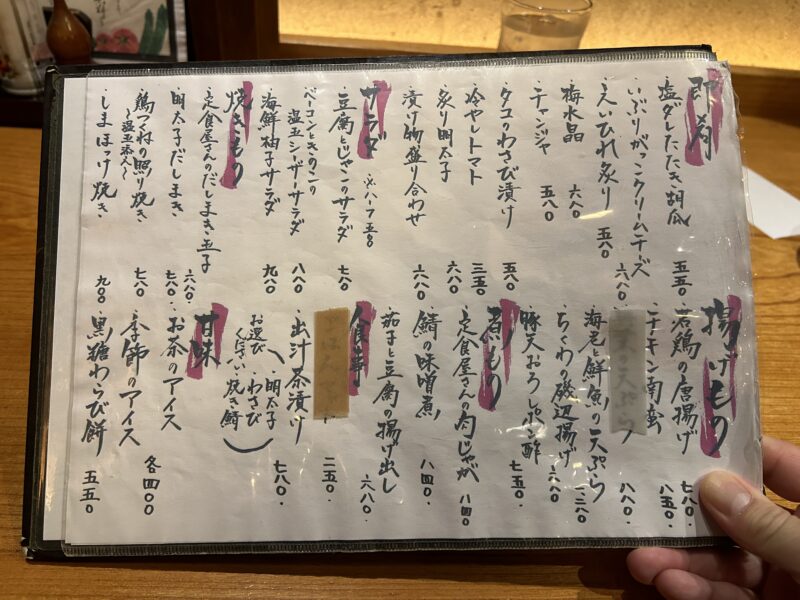 即肴
・塩ダレたたき胡瓜 五五〇
・いぶりがっこクリームチーズ 六八〇
・えいひれ炙り 五八〇
・梅水晶 六八〇
・チャンジャ 五八〇
・タコのわさび漬け 五八〇
・冷やしトマト 三五〇
・炙り明太子 六八〇
・漬け物盛り合わせ 六八〇
サラダ ※ハーフ五〇〇
・豆腐とじゃこのサラダ 七八〇
・ベーコンときのこの
温玉シーザーサラダ 八八〇
・海鮮柚子サラダ 九八〇
焼きもの
・定食屋さんのだしまき玉子 六八〇
・明太子だしまき 七八〇
・鶏つくねの照り焼き
〜温玉添え〜 七八〇
・しまほっけ焼き 九八〇
揚げもの
・若鶏の唐揚げ 七八〇
・チキン南蛮 八五〇
八八〇
・海老と鮮魚の天ぷら 一二八〇
・ちくわの磯辺揚げ 六八〇
・豚天おろしポン酢 七五〇
煮もの
・定食屋さんの肉じゃが 八四〇
・鯖の味噌煮 八四〇
・茄子と豆腐の揚げ出し 六八〇
食事
二五〇
・出汁茶漬け 七八〇
お選びください(・明太子・わさび・焼き鯖)
甘味
・お茶のアイス
・季節のアイス 各四〇〇
・黒糖わらび餅 五五〇